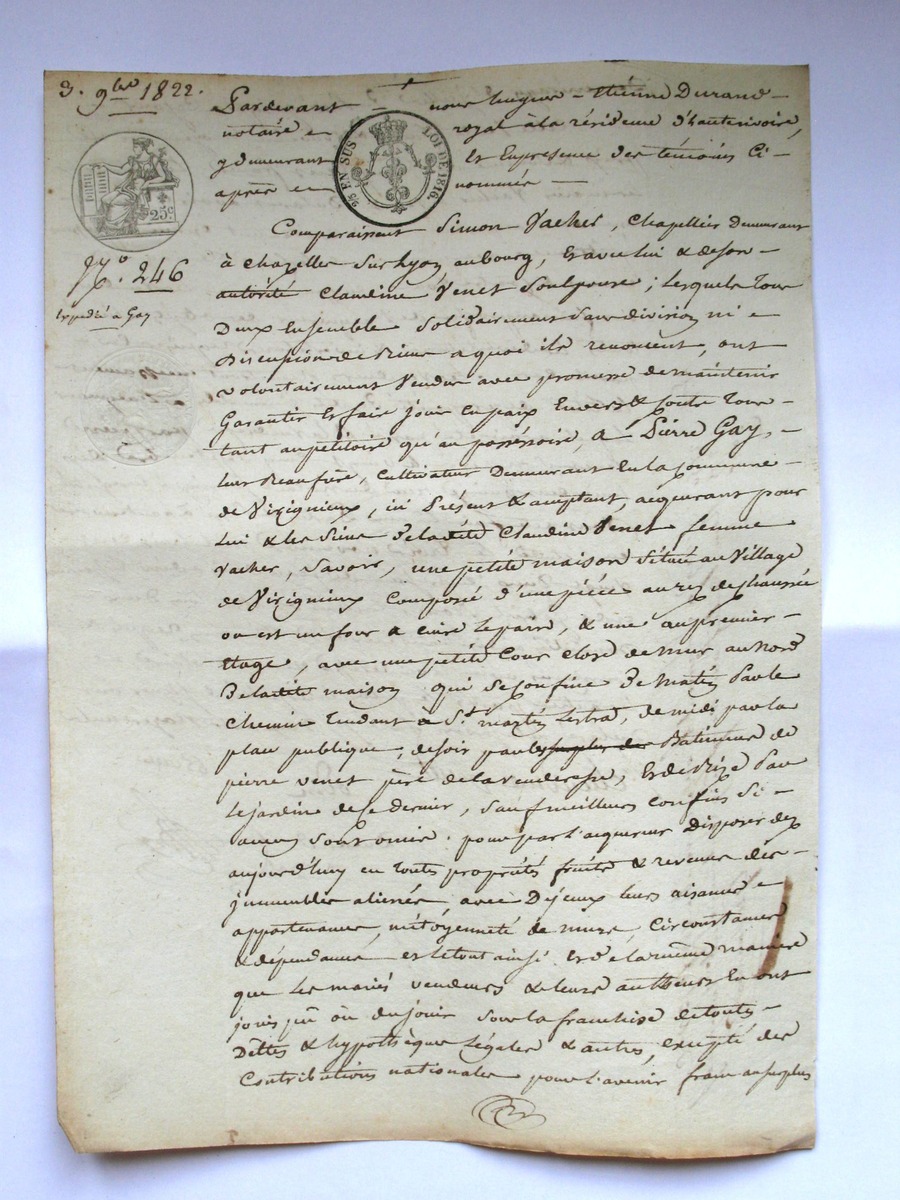 3. 9bre 1822.
Pardevant nous hugues - Etiénne Durand
notaire royal à la résidence d'hauterivoire,
y demeurant Et En présence des témoins Ci-
après nommés
25 EN SUS LOI DE 1816.
25c
N.o 246
Expédié a Gay
Comparaissent Simon Vacher, Chapellier Demeurant
à Chazelles Sur Lyon, au bourg, Et avec lui & de son
autorité Claudine Venet Son Epouse; Lesquels Tous
Deux Ensemble Solidairement Sans division ni
Discussion de biens a quoi ils renoncent, ont
volontairement Vendu avec promesse de maintenir
Garantir Et faire jouir En paix Envers & Contre Tous
tant au pétitoire qu'au posséssoire, A Piérre Gay,
leur Beaufrère, Cultivateur Demeurant En la Commune
de Virignieux, ici Présent & acceptant, acquerant pour
Lui & les Siens De ladite Claudine Venet femme
Vacher, Savoir, une petite maison Située au Village
de Virignieux Composée d'une piéce au rez de chaussée
ou est un four a cuire le pain, & une au premier
Etage, avec une petite Cour close de mur au Nord
De ladite maison qui Se Confine De Matin Par le
Chemin Tendant à St. martin Lestra, de midi par la
place publique, de soir par les Batiments de
pierre venet pére de la venderesse, Et de Bize Par
Le jardin de Ce dernier, Sauf meilleurs confins Si
aucuns Sont omis. pour par l'acquereur Disposer dez
aujourd'huy en toute propriété fruits & revenus des
jmmeubles aliénés, avec Déjeux leurs aisances
appartenances, mitoyenneté de murs, Circonstances
& dépendances et le tout ainsi Et de la même maniere
que Les mariés vendeurs & leurs autheurs En ont
joui pû ou du jouir Sous la franchise de toutes
Dêttes & hypothêques Légales & autres, Excepté des
Contributions nationales pour l'avenir franc au surplus